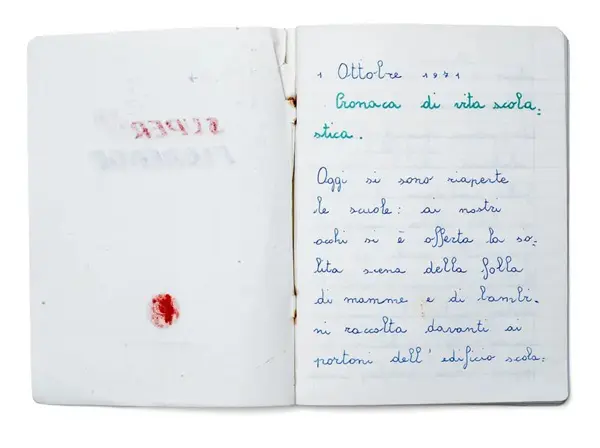 SUPER
1 Ottobre 1971
Cronaca di vita scola=
stica.
Oggi si sono riaperte
le scuole: ai nostri
occhi si è offerta la so=
lita scena della folla
di mamme e di bambi=
ni raccolta davanti ai
portoni dell' edificio scola=